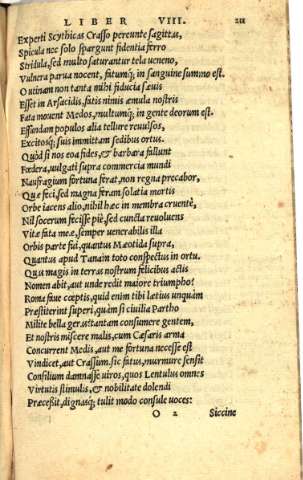 LIBER VIII. 211
Experti Scythicas Crasso pereunte sagittas,
Spicula nec solo spargunt fidentia ferro
Stridula, sed multo saturantur tela ueneno,
Vulnera parua nocent, fatumq; in sanguine summo est.
O utinam non tanta mihi fiducia sæuis
Esset in Arsacidis, fatis nimis æmula nostris
Fata mouent Medos, multumq; in gente deorum est.
Effundam populos alia tellure reuulsos,
Excitosq; suis immittam sedibus ortus.
Quòd si nos eoa fides, & barbara fallunt
Fœdera, uulgati supra commercia mundi
Naufragium fortuna ferat, non regna precabor,
Quæ feci, sed magna feram solatia mortis
Orbe iacens alio, nihil hæc in membra cruentè,
Nil socerum fecisse piè, sed cuncta reuoluens
Vitæ fata meæ, semper uenerabilis illa
Orbis parte fui, quantus Mæotida supra,
Quantus apud Tanaim toto conspectus in ortu.
Quas magis in terras nostrum felicibus actis
Nomen abit, aut unde redit maiore triumpho?
Roma faue cœptis, quid enim tibi lætius unquàm
Præstiterint superi, quàm si ciuilia Partho
Milite bella geras, tantam consumere gentem,
Et nostris miscere malis, cum Cæsaris arma
Concurrent Medis, aut me fortuna necesse est
Vindicet, aut Crassum. sic fatus, murmure sensit
Consilium damnasse uiros, quos Lentulus omnes
Virtutis stimulis, & nobilitate dolendi
Præcessit, dignasq; tulit modo consule uoces:
O 2 Siccine